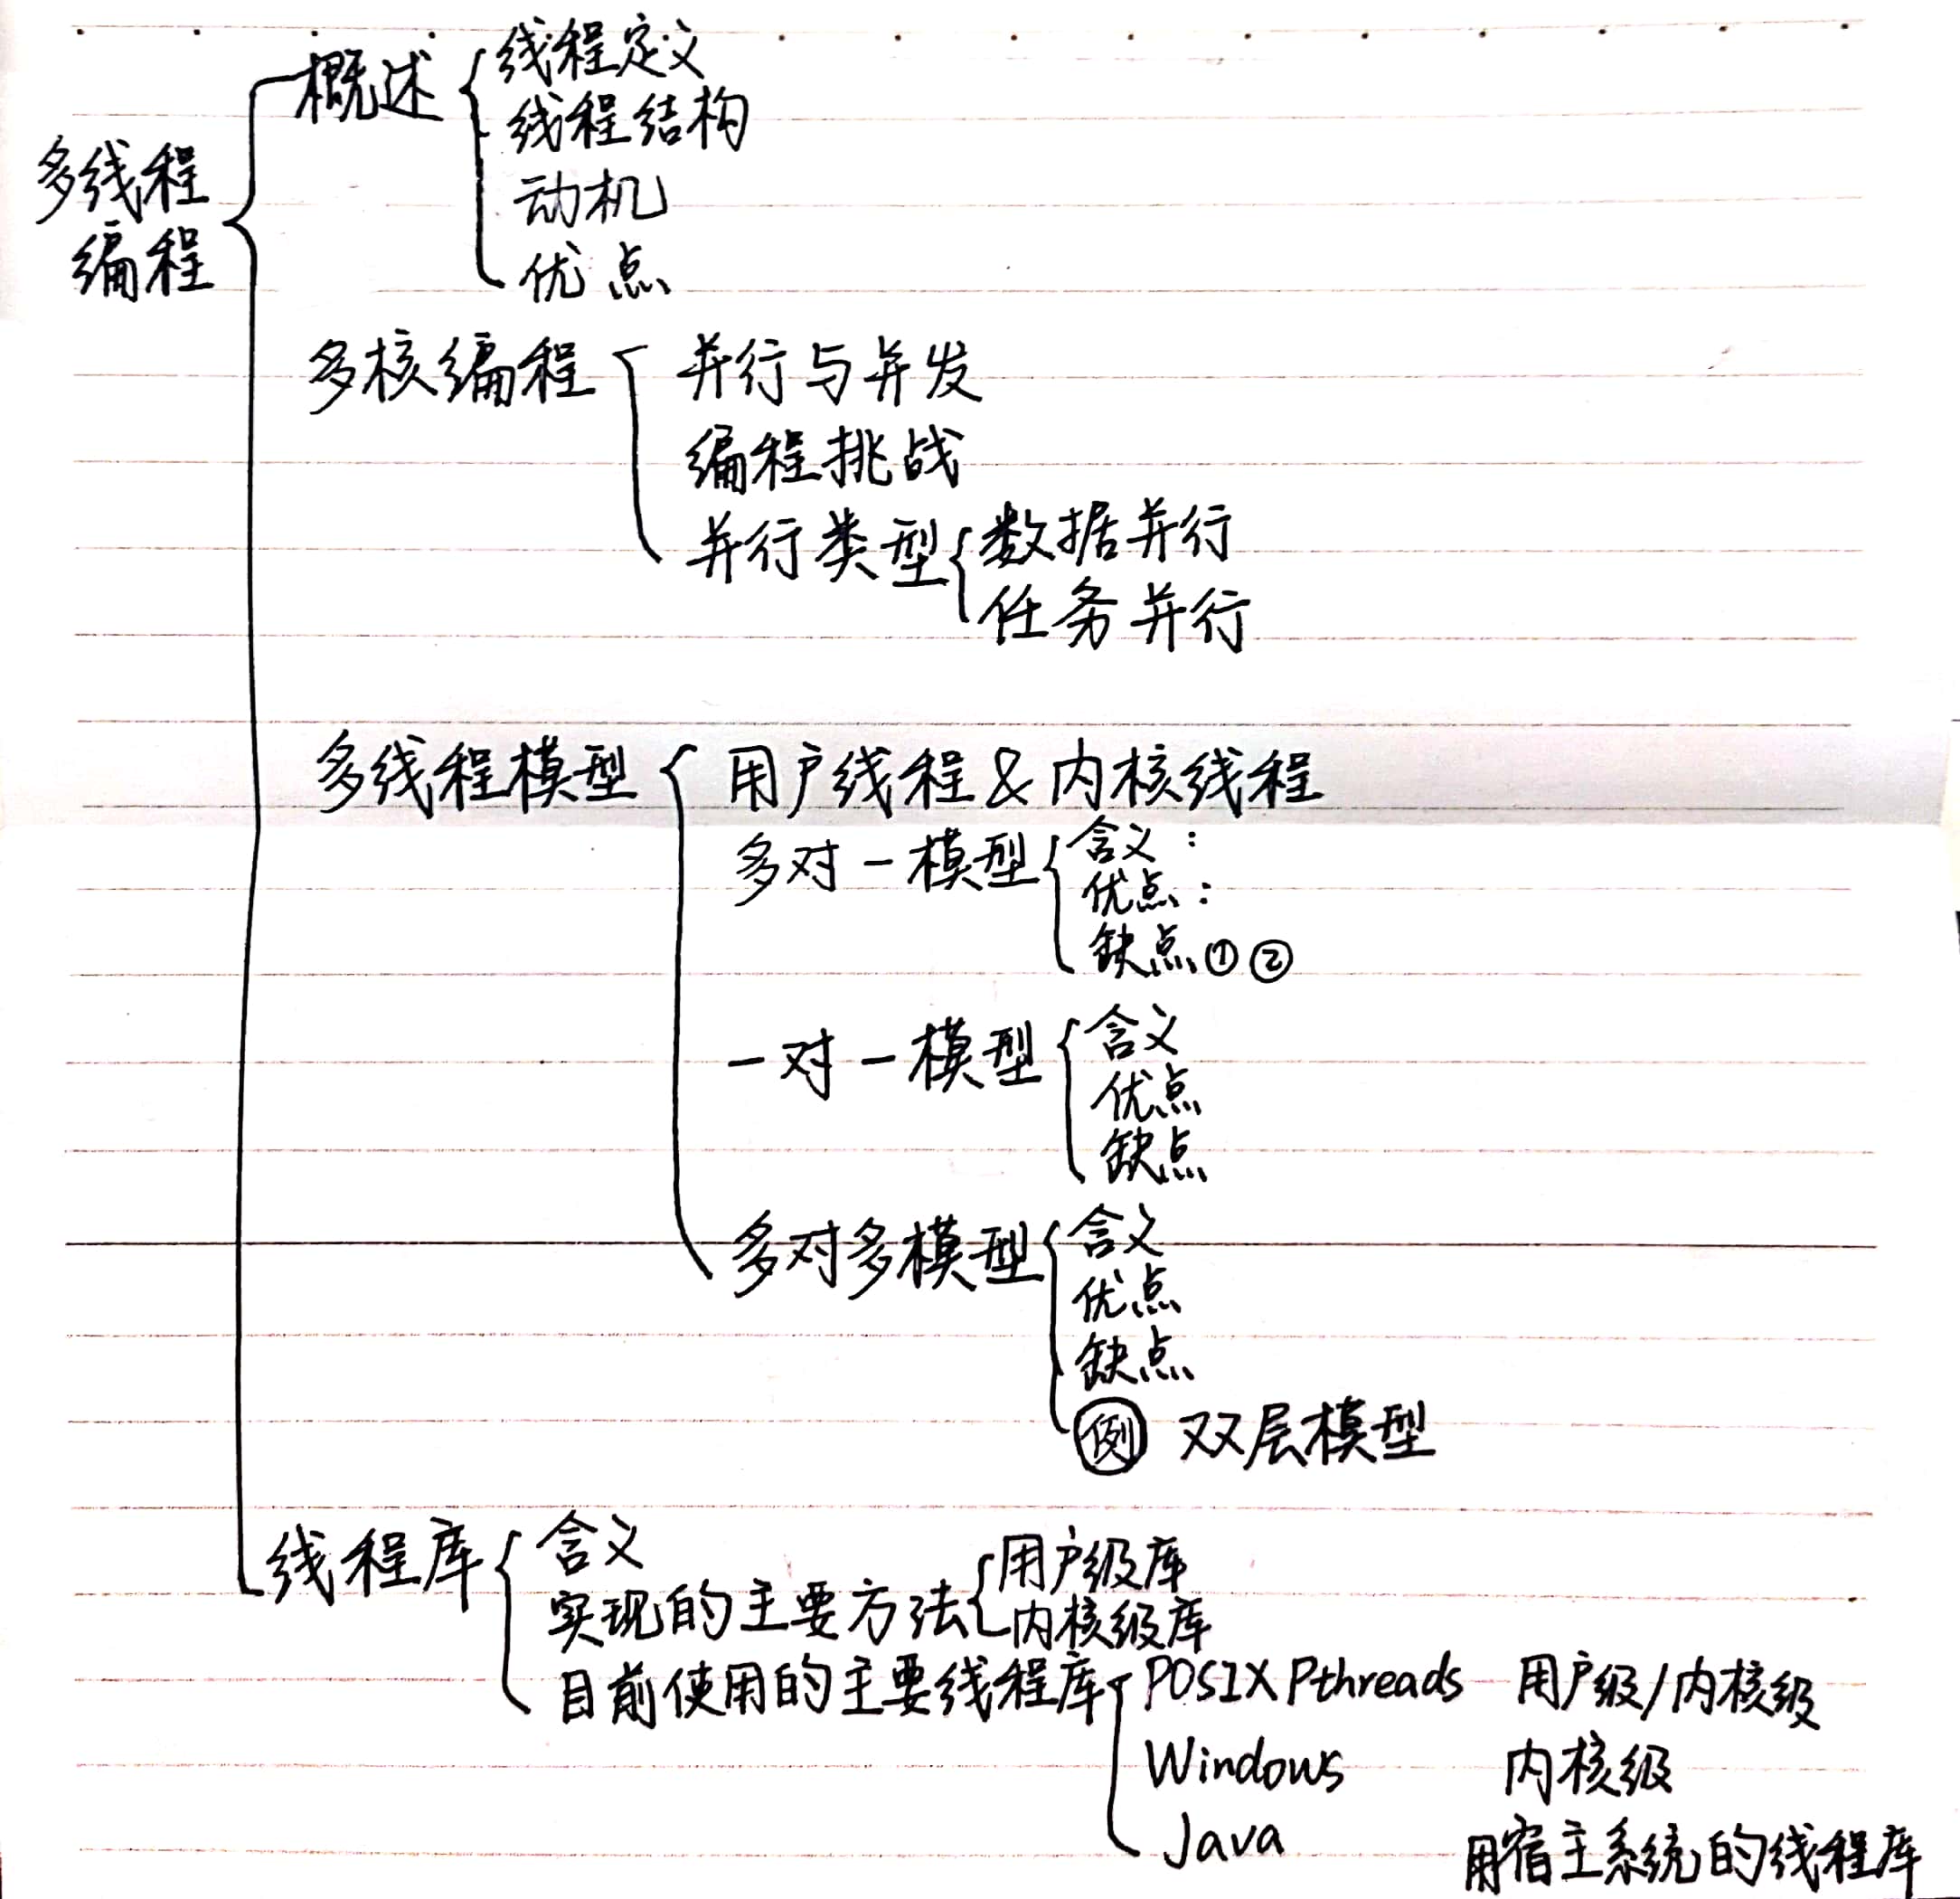 多线程
编程
概述
线程定义
线程结构
动机
优点
多核编程
并行与并发
编程挑战
并行类型
数据并行
任务并行
多线程模型
用户线程 & 内核线程
多对一模型
含义：
优点：
缺点①②
一对一模型
含义
优点
缺点
多对多模型
含义
优点
缺点
例 双层模型
线程库
含义
实现的主要方法
用户级库
内核级库
目前使用的主要线程库
POSIX Pthreads 用户级/内核级
Windows 内核级
Java 用宿主系统的线程库